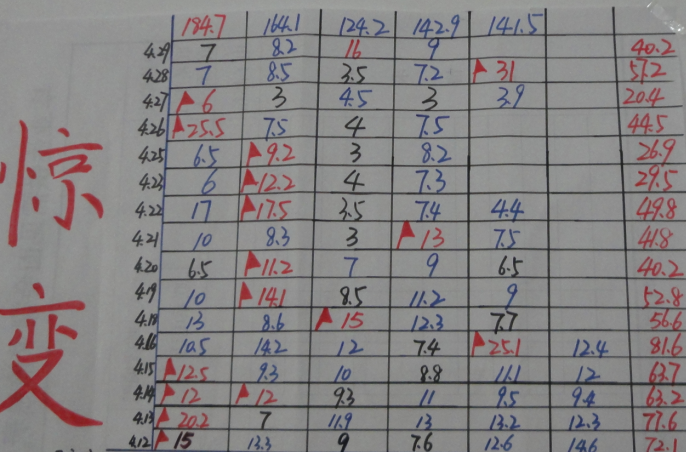 184.7 164.1 124.2 142.9 141.5
4.29 7 8.2 16 9 40.2
4.28 7 8.5 3.5 7.2 31 57.2
4.27 6 3 4.5 3 3.9 20.4
4.26 25.5 7.5 4 7.5 44.5
4.25 6.5 9.2 3 8.2 26.9
4.23 6 12.2 4 7.3 29.5
4.22 17 17.5 3.5 7.4 4.4 49.8
4.21 10 8.3 3 13 7.5 41.8
4.20 6.5 11.2 7 9 6.5 40.2
4.19 10 14.1 8.5 11.2 9 52.8
4.18 13 8.6 15 12.3 7.7 56.6
4.16 10.5 14.2 12 7.4 25.1 12.4 81.6
4.15 12.5 9.3 10 8.8 11.1 12 63.7
4.14 12 12 9.3 11 9.5 9.4 63.2
4.13 20.2 7 11.9 13 13.2 12.3 77.6
4.12 15 13.3 9 7.6 12.6 14.6 72.1
惊变